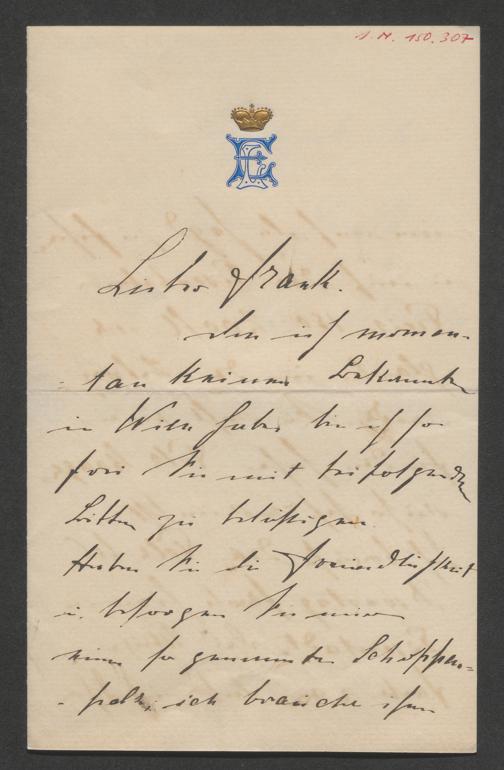 I. N. 150.307
Lieber Frank.
Da ich momen-
tan keinen Bekannten
in Wien habe, bin ich so
frei Sie mit beifolgender
Bitte zu belästigen
Haben Sie die Freundlichkeit
u. besorgen Sie mir
einen so genannten Schoppen-
pelz, ich brauche ihn